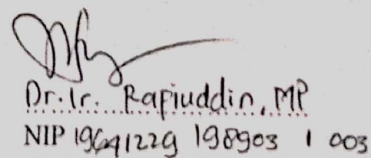 Dr. Ir. Rafiuddin, MP
NIP 19641229 198903 1 003